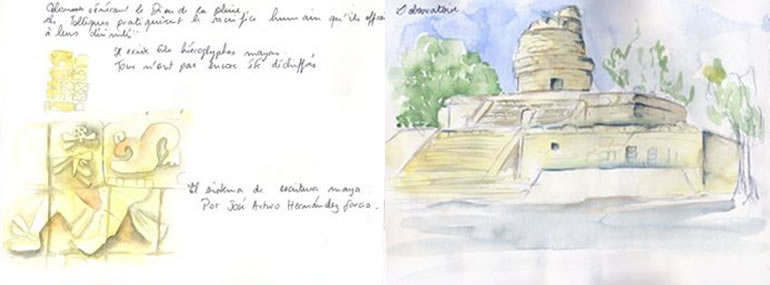 vénérant le Dieu de la pluie.
Les Toltèques pratiquaient le sacrifice humain qu'ils
à leurs divinités
Il existe 816 hiéroglyphes mayas.
Tous n'ont pas encore été déchiffrés
El sistema de escritura maya.
Por José Arturo Hernández
L'observatoire